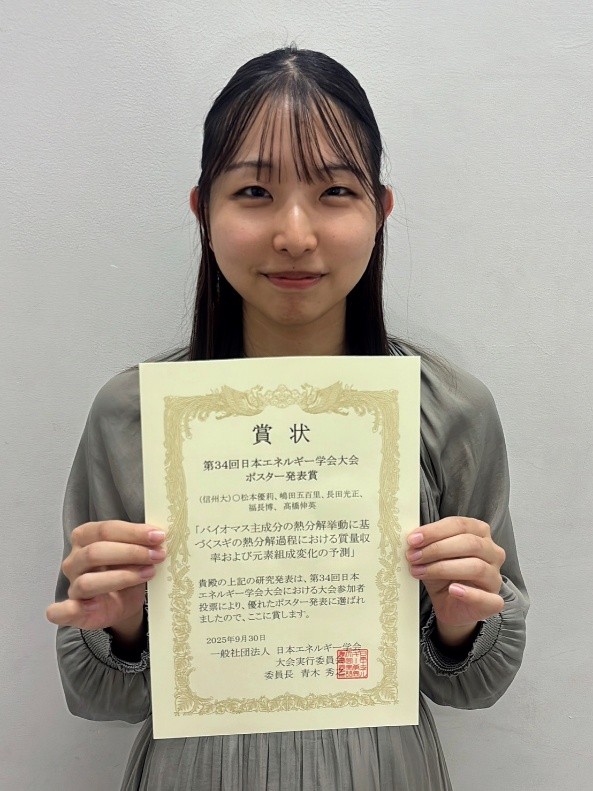 賞 状
第34回日本エネルギー学会大会
ポスター発表賞
(信州大)○松本優莉、嶋田五百里、長田光正、
福長博、高橋伸英
「バイオマス主成分の熱分解挙動に基
づくスギの熱分解過程における質量収
率および元素組成変化の予測」
貴殿の上記の研究発表は、第34回日本
エネルギー学会大会における大会参加者
投票により、優れたポスター発表に選ばれ
ましたので、ここに賞します。
2025年9月30日
一般社団法人 日本エネルギー学会
大会実行委員
委員長 青木 秀